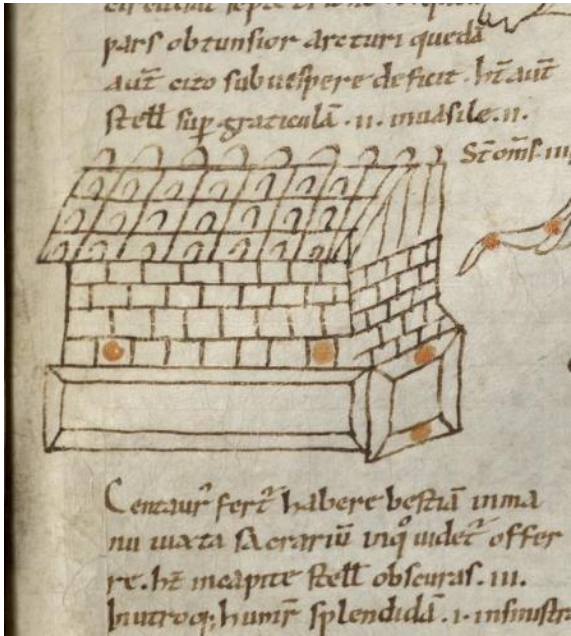 pars obtunsior arcturi quedā
aut̄ cito sub uespere deficit. ht̄ aut̄
stell̄ sup graticulā .ii. in uasile .ii.
St̄ om̄s. iii
Centaur fert habere bestiā in ma
nu iuxta sacrariū in q̊ uidet offer
re. ht̄ in capite stell̄ obscuras .iii.
In utroq; humer splendidā .i. in sinistr